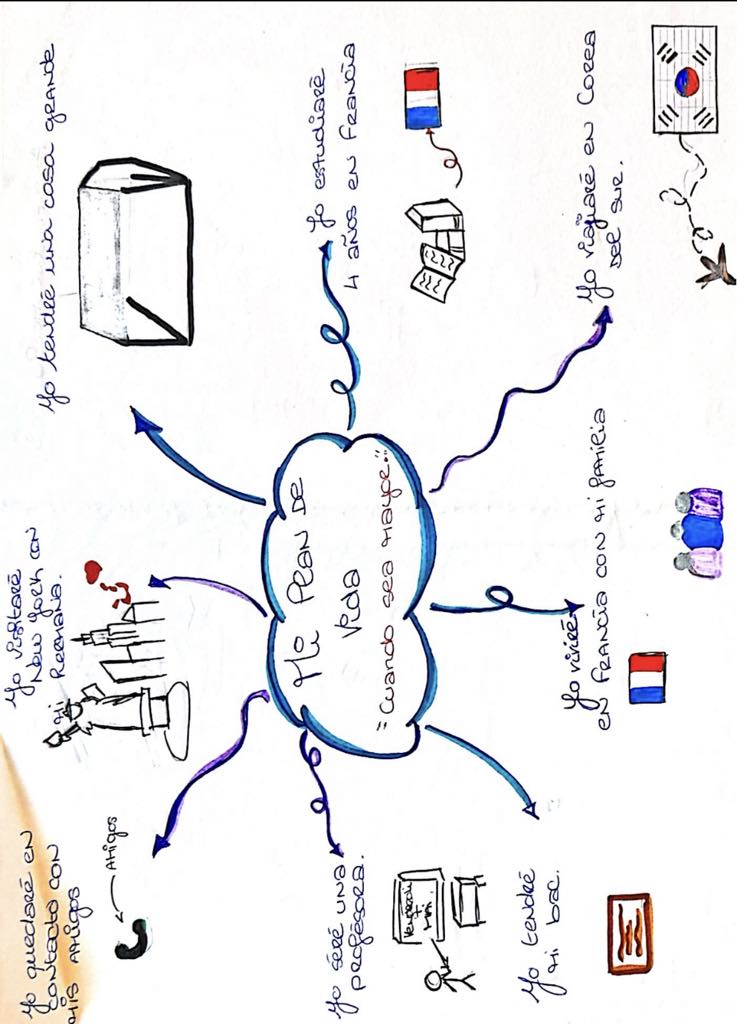 Mi Plan de
Vida
"Cuando sea mayor..."
Yo quedaré en
contacto con
mis amigos
Amigos
Yo visitaré
New York con
mi hermana.
Yo tendré una casa grande
Yo estudiaré
4 años en Francia
Yo viajaré en Corea
del sur.
Yo viviré
en Francia con mi familia
Yo tendré
mi bac.
Yo seré una
profésora.
Vendredi
7